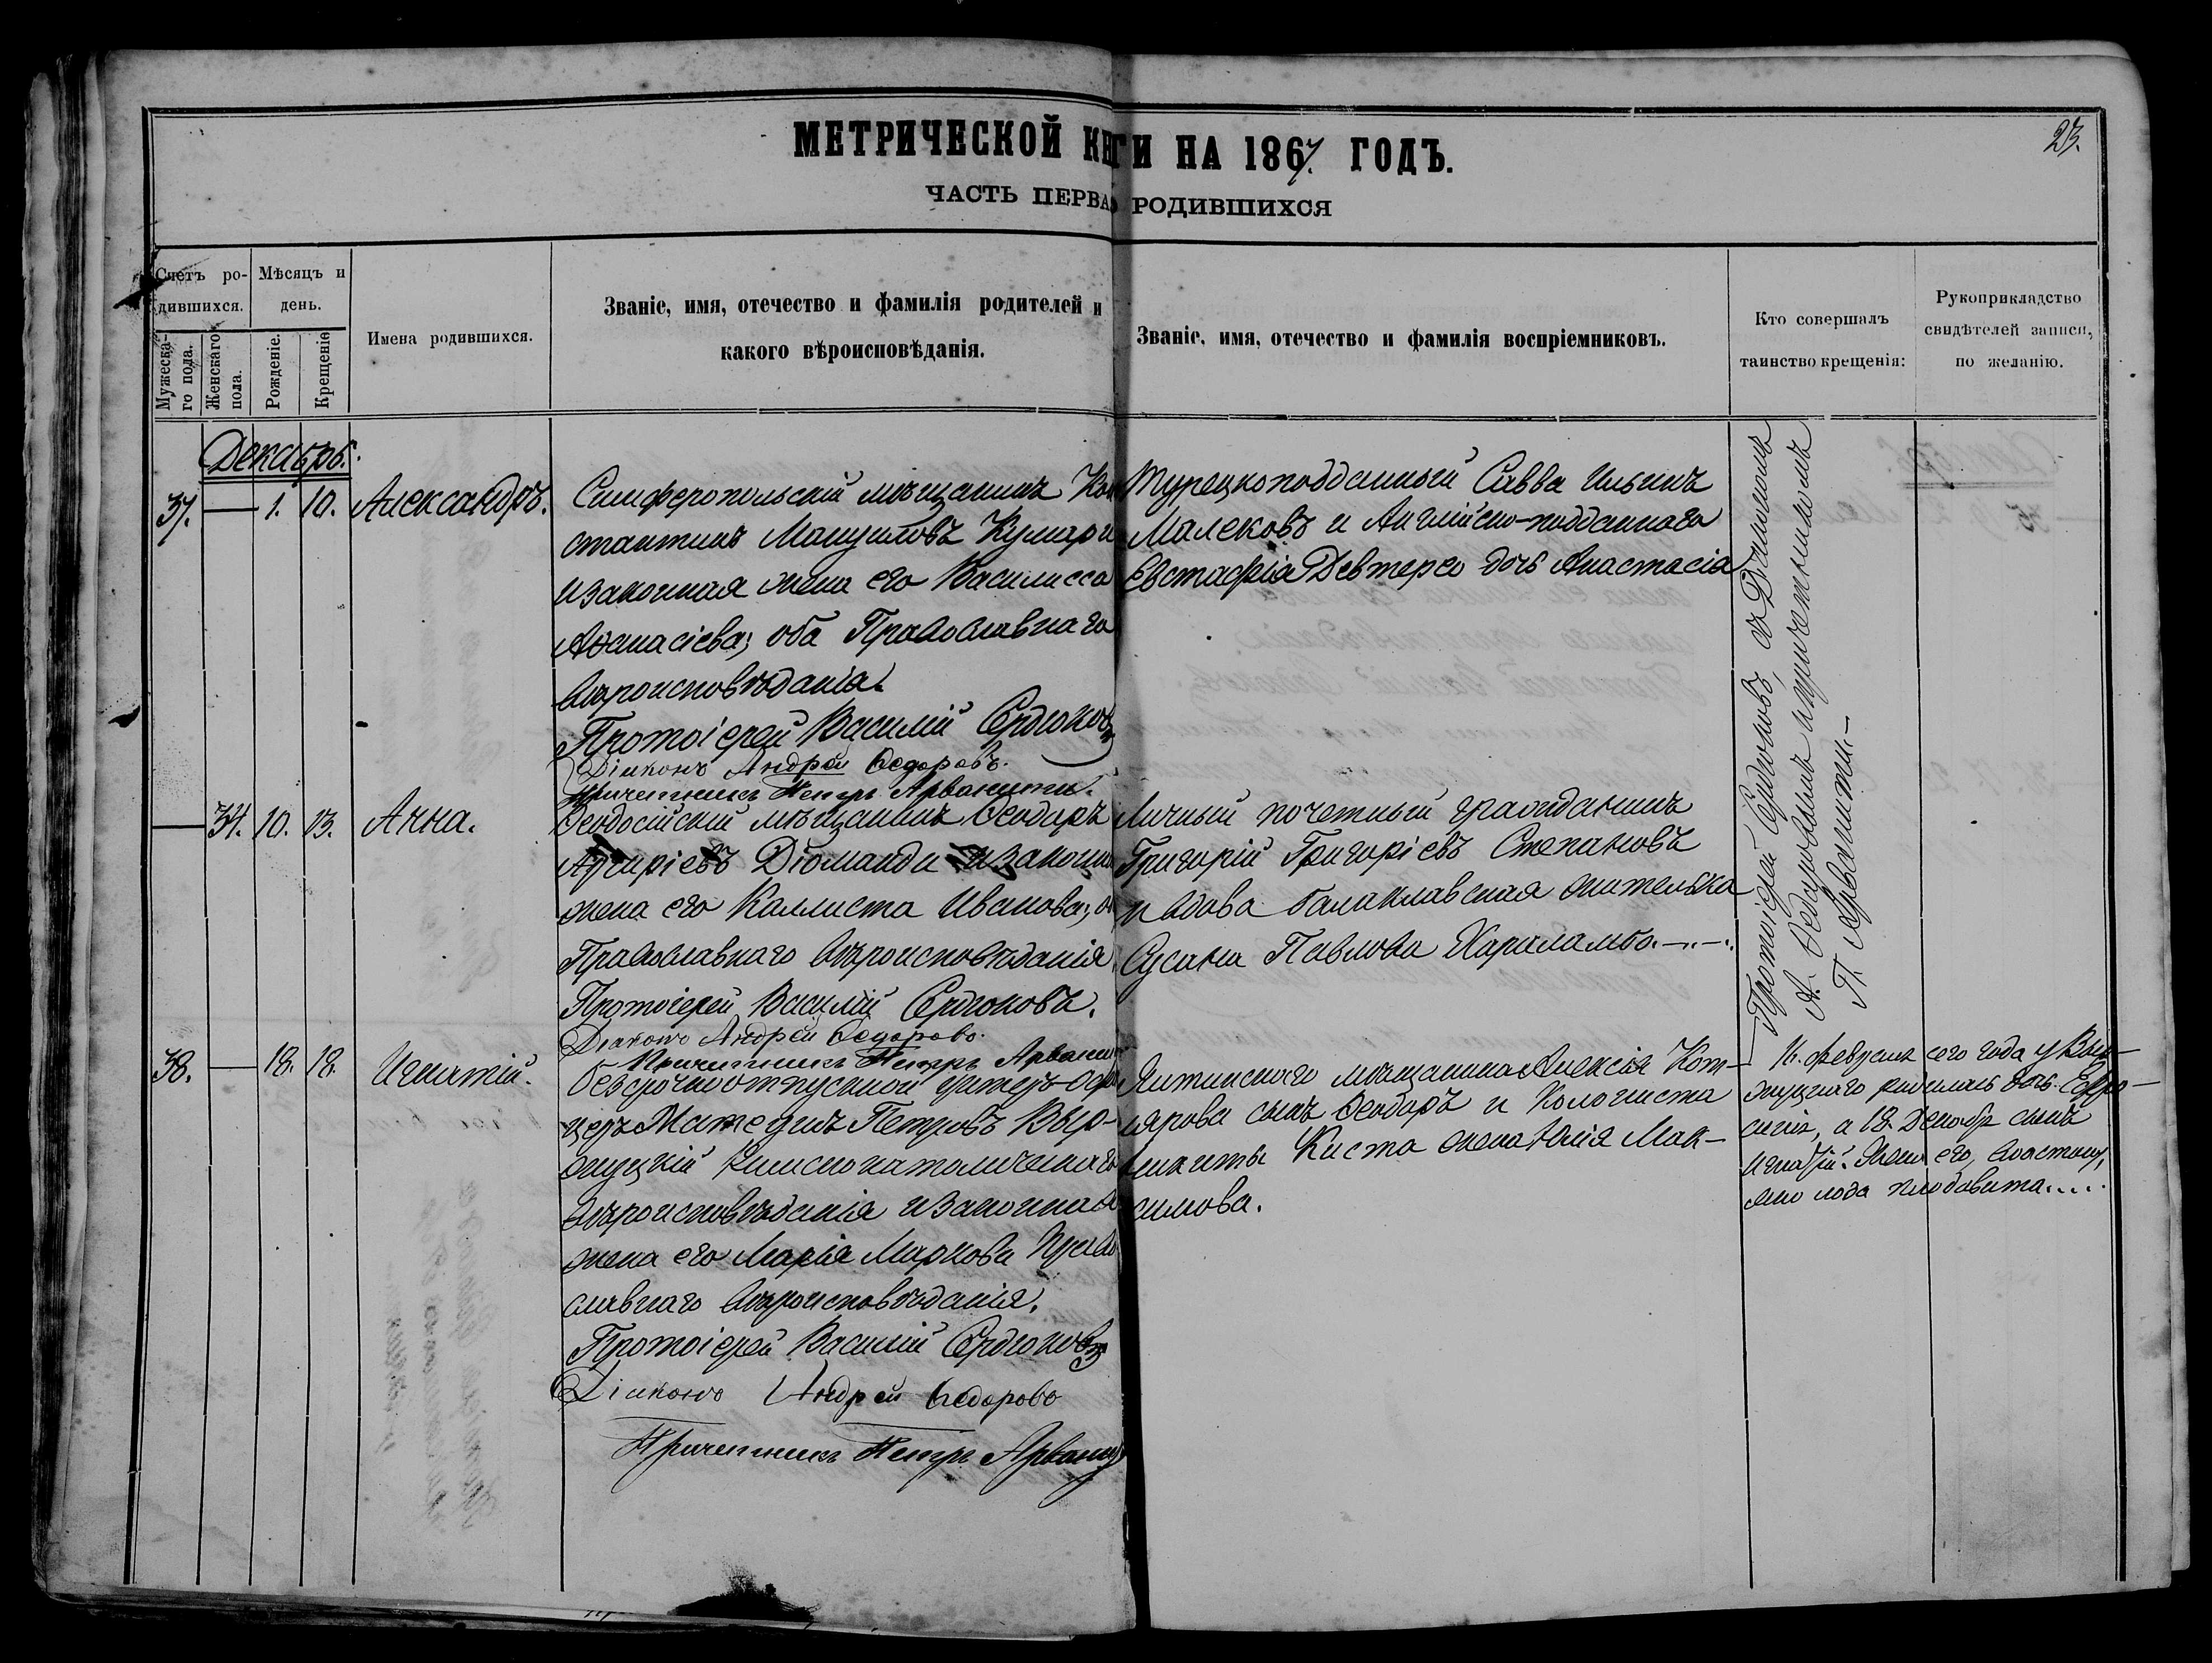 23.
МЕТРИЧЕСКОЙ КНГИ НА 1867. ГОДЪ.
ЧАСТЬ ПЕРВАЯ РОДИВШИХСЯ
Счетъ ро-
дившихся.
Мужеска-
го пола.
Женскаго
пола.
Мѣсяцъ и
день.
Рожденіе.
Крещеніе
Имена родившихся.
Званіе, имя, отечество и фамилія родителей и
какого вѣроисповѣданія.
Званіе, имя, отечество и фамилія воспріемниковъ.
Кто совершалъ
таинство крещенія:
Рукоприкладство
свидѣтелей записи,
по желанію.
Декабрь.
37. — 1. 10. Александръ.
Симферопольскій мѣщанинъ Кон
стантинъ Мануиловъ Кумари
и законная жена его Василисса
Аѳанасіева; оба Православнаго
вѣроисповѣданія.
Протоіерей Василій Сердюковъ
Діаконъ Андрей Ѳедоровъ.
Причетникъ Петръ Арванити.
Турецкоподданный Савва Ильинъ
Малековъ и Англійско-подданнаго
Евстафія Девтерео дочь Анастасія
Протоіерей Сердюковъ, съ Діакономъ
А. Ѳедоровымъ и причетникомъ
П. Арванити.—
— 34. 10. 13. Анна.
Ѳеодосійскій мѣщанинъ Ѳеодоръ
Аргиріевъ Діоманди и законная
жена его Каллиста Иванова; о
Православнаго вѣроисповѣданія.
Протоіерей Василій Сердюковъ.
Діаконъ Андрей Ѳедоровъ.
Причетникъ Петръ Арванит
Личный почетный гражданинъ
Григорій Григоріевъ Степановъ
и вдова балаклавская жителька
Сусана Павлова Хараламбо.—..—.
38. — 18. 18. Игнатій.
Безсрочноотпускной унтеръ-офи
церъ Матедушъ Петровъ Выр-
жуцкій Римскокатолическаго
вѣроисповѣданія и законная
жена его Марія Маркова Право
славнаго вѣроисповѣданія.
Протоіерей Василій Сердюковъ
Діаконъ Андрей Ѳедоровъ
Причетникъ Петръ Арванит
Ялтинскаго мѣщанина Алексія Кот-
лярова сынъ Ѳеодоръ и Колониста
Никиты Киста жена Юлія Мак-
симова.
16. февраля сего года у Выр-
жуцкаго родилась дочь Евфро-
синія, а 18. Декабр сынъ
Игнатій. Жена его,
плодовита....